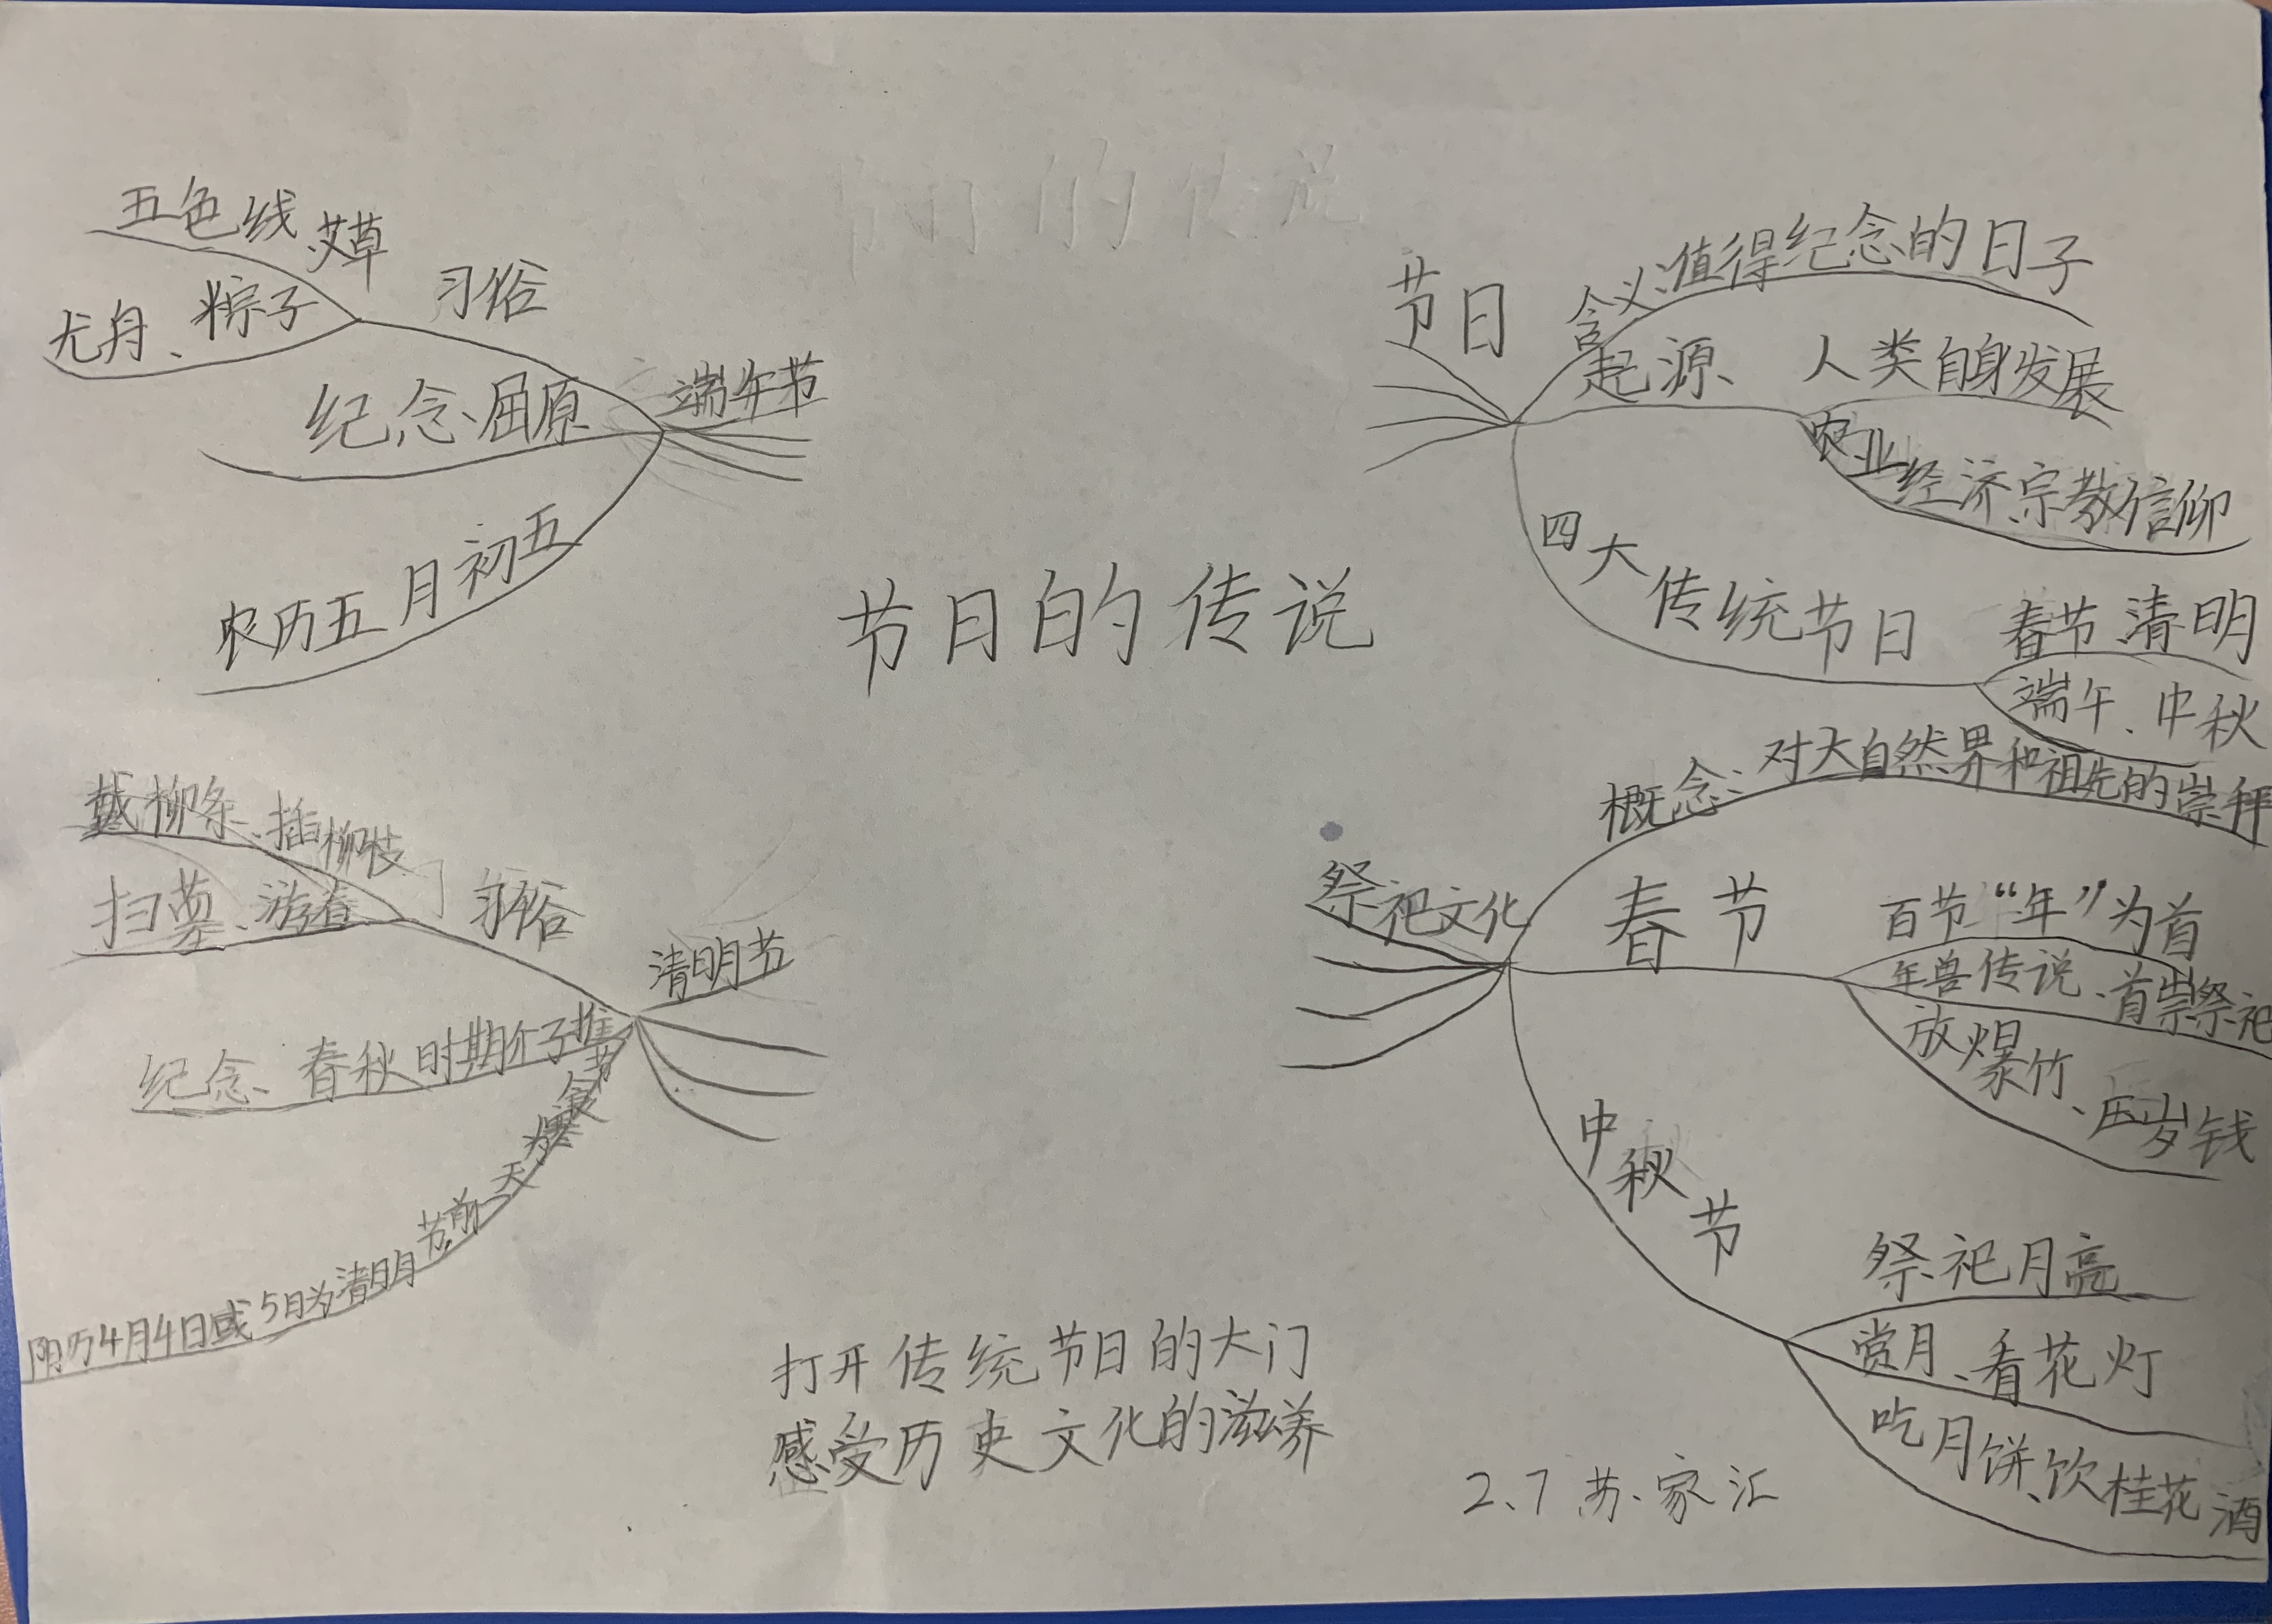 节日的传说
节日
含义:值得纪念的日子
起源、人类自身发展
农业经济、宗教信仰
四大传统节日
春节、清明
端午、中秋
祭祀文化
概念:对大自然界和祖先的崇拜
春节
百节“年”为首
年兽传说、首崇祭祀
放爆竹、压岁钱
中秋节
祭祀月亮
赏月、看花灯
吃月饼、饮桂花酒
清明节
习俗
戴柳条、插柳枝
扫墓、游春
纪念、春秋时期介子推
阴历4月4日或5日为清明节,前一天为寒食节
端午节
习俗
五色线、艾草
尤舟、粽子
纪念、屈原
农历五月初五
打开传统节日的大门
感受历史文化的滋养
2、7 苏家汇